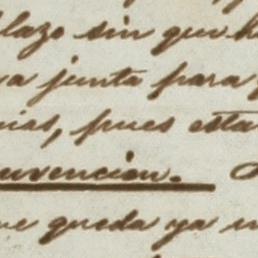 lazo sin que h
va junta para
cias, pues esta
nvencion.
ue queda ya